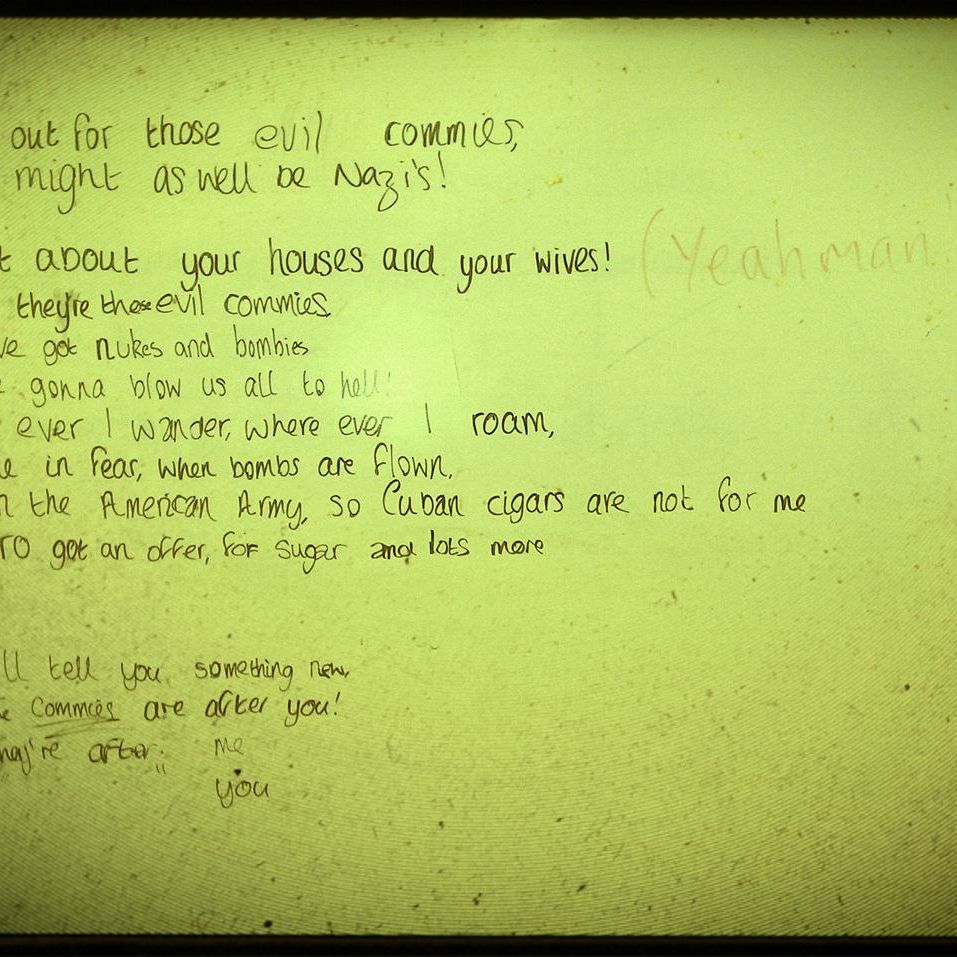 out for those evil commies,
might as well be Nazi's!
t about your houses and your wives! (Yeah man
they're those evil commies
ve got nukes and bombies
e gonna blow us all to hell!
ever I wander, where ever I roam,
e in fear, when bombs are flown.
n the American Army, so Cuban cigars are not for me
ro got an offer, for sugar and lots more
ll tell you something new,
e Commies are after you!
hay're after; me
you